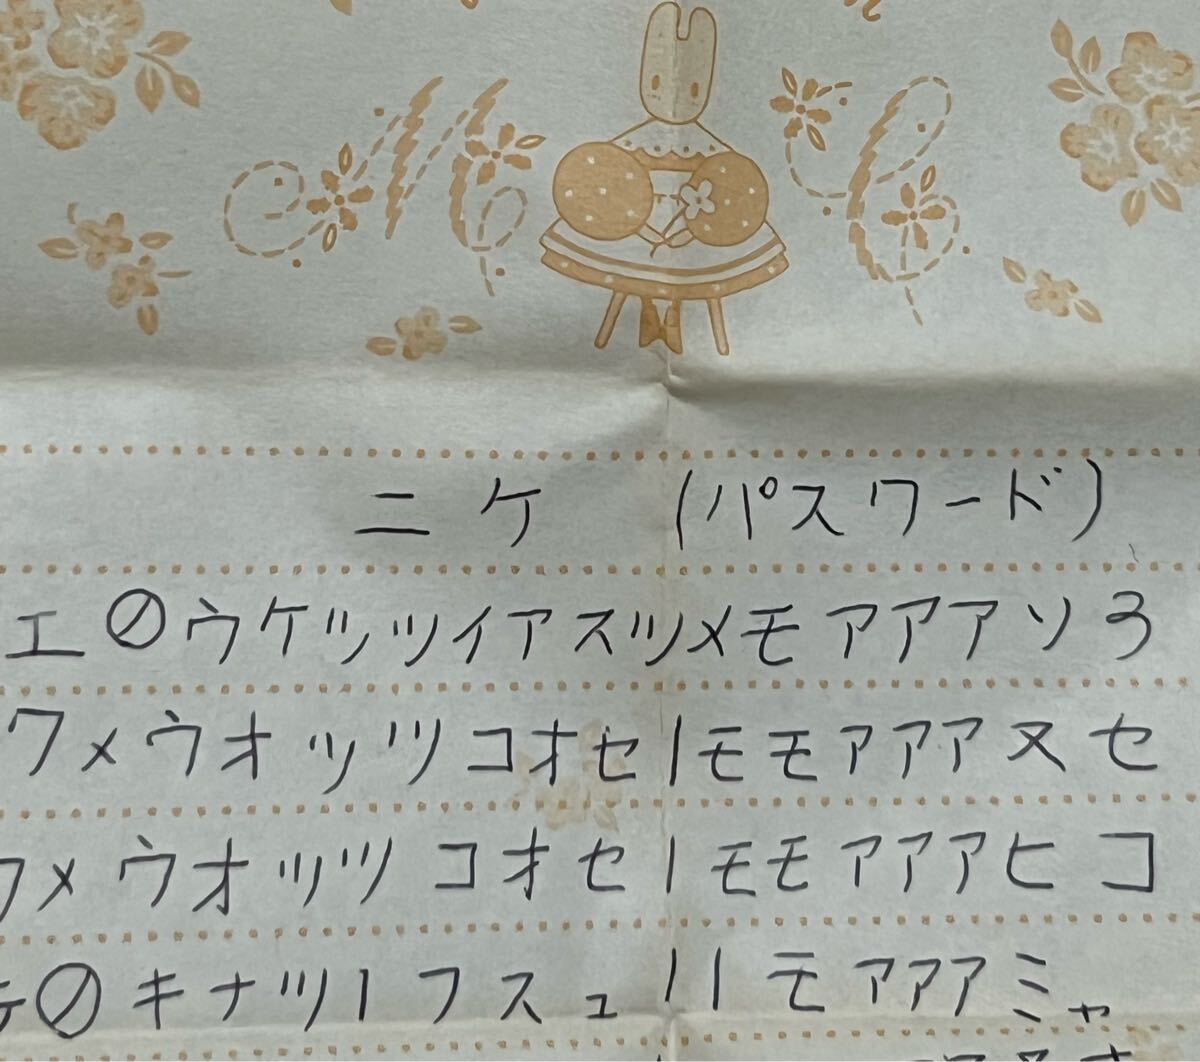 ニケ (パスワード)
エ⊘ウケッツイアスツメモァアアソろ
ワメウオッツコオセ１モモァアアヌセ
ワメウオッツコオセ１モモァアアヒコ
⊘キナツ１フスュ１１モァァアミャ